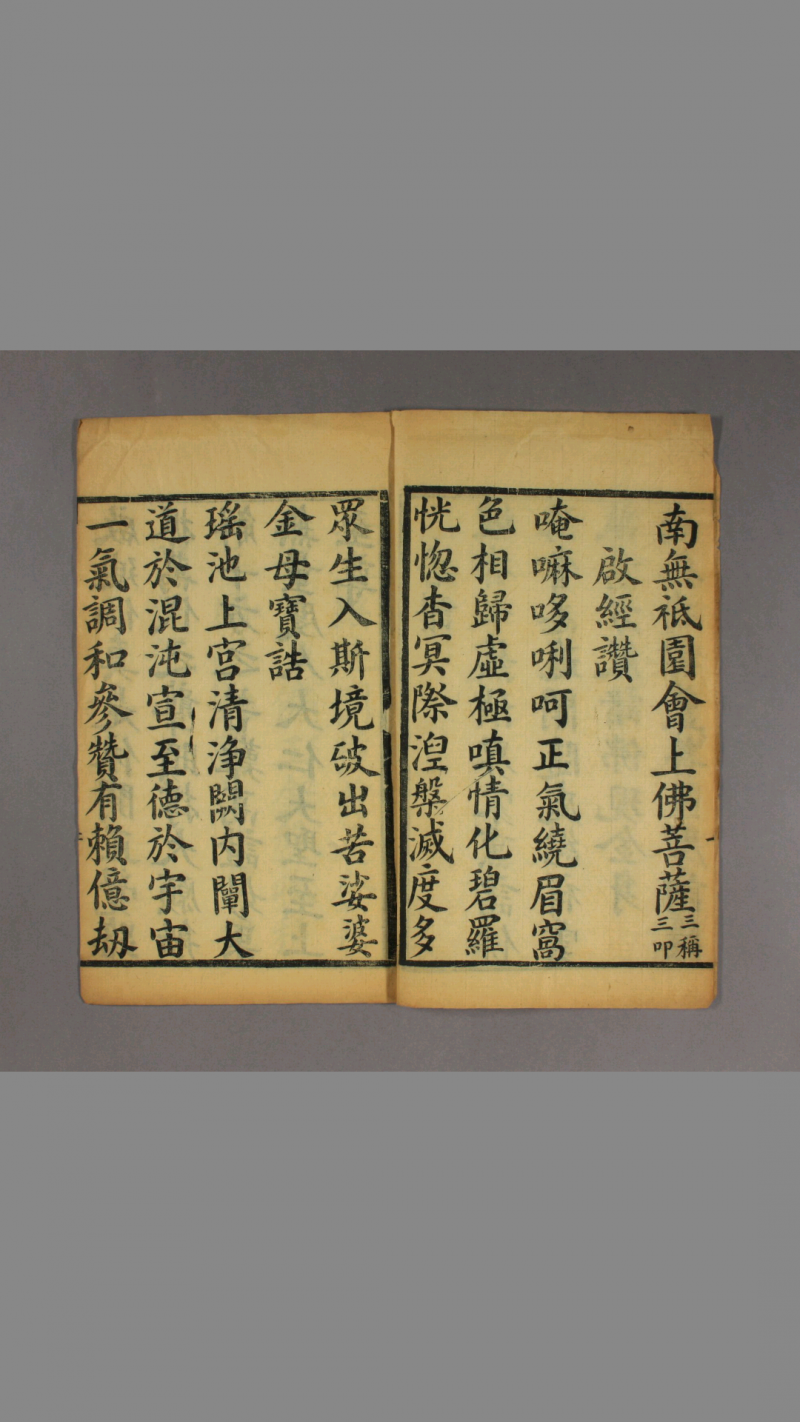 南無祗園會上佛菩薩三稱三叩
啟經讚
唵嘛哆唎呵正氣繞眉窩
色相歸虛極嗔情化碧羅
恍惚杳冥際湼槃滅度多
眾生入斯境破出苦娑婆
金母寶誥
瑤池上宮清淨闕内闡大
道於混沌宣至德於宇宙
一氣調和參贊有賴億劫